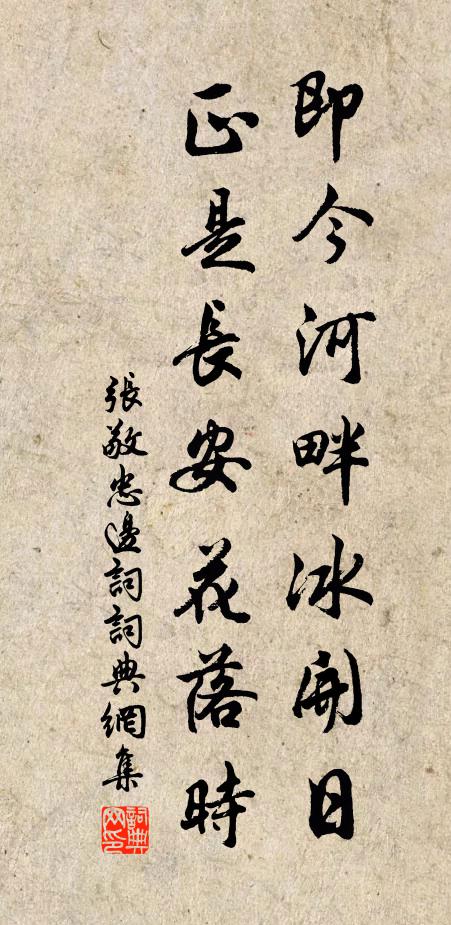 即今河畔冰開日
正是長安花落時
張敬忠邊詞詞典網集
詞典網印